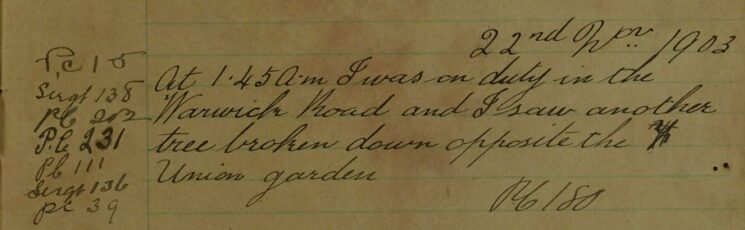 22nd Nov. 1903
At 1.45 A.m I was on duty in the
Warwick Road and I saw another
tree broken down opposite the
Union garden
PC 180
PC 15
Sergt 138
PC 202
P.C 231
PC 111
Sergt 136
PC 39